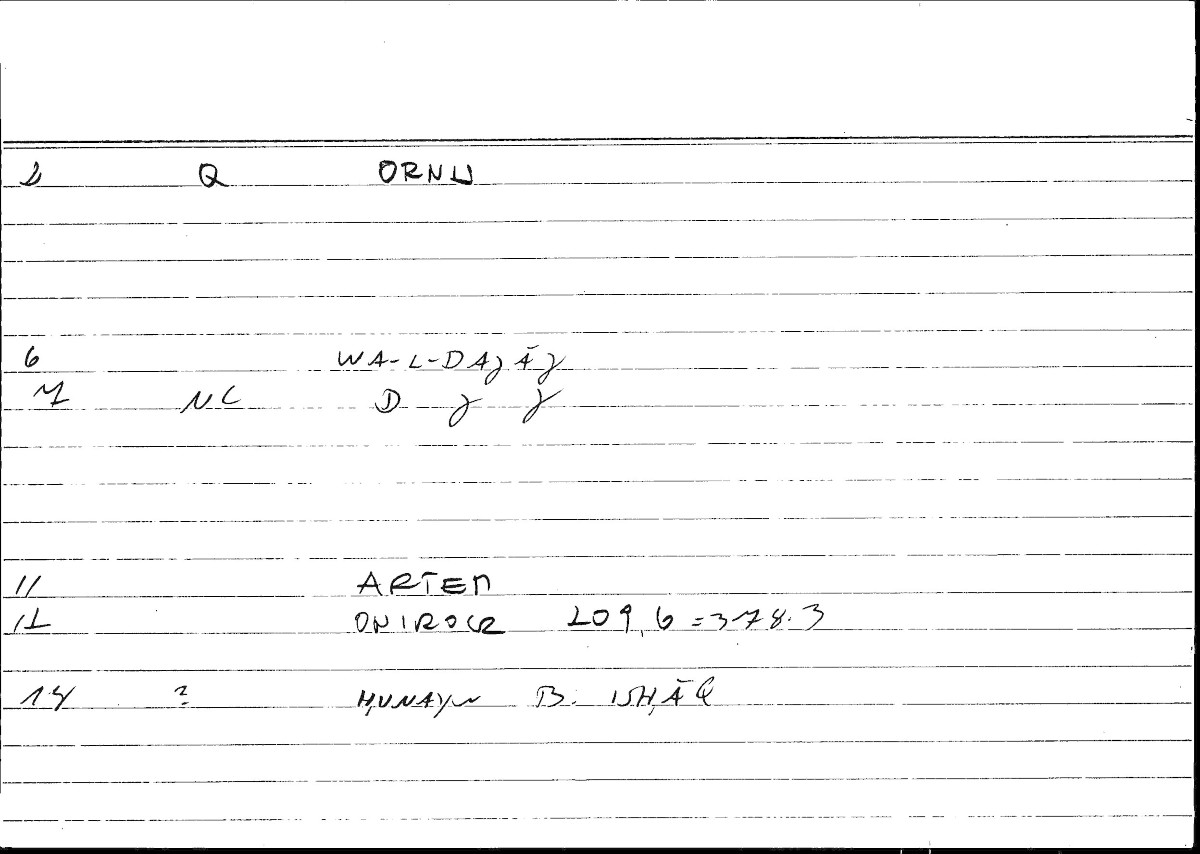 2 Q ORNIS
6 WA-L-DAJĀJ
7 NC D J J
11 ARTEM
12 ONIROCR 209,6 = 378.3
14 ? ḤUNAYN B. ISḤĀQ